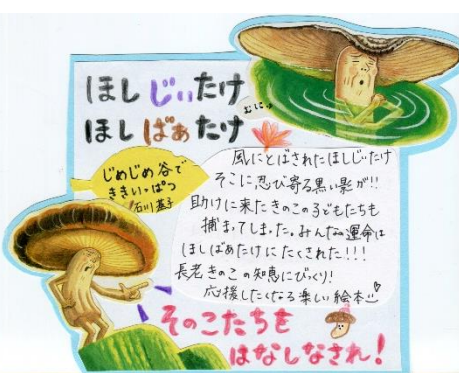 ほしじぃたけ
ほしばぁたけ
むにゅ
じめじめ谷で
ききいっぱつ
石川基子
風にとばされたほしじぃたけ
そこに忍び寄る黒い影が!!
助けに来たきのこの子どもたちも
捕まってしまった。みんなの運命は
ほしばあたけにたくされた!!!
長老きのこの知恵にびっくり!
応援したくなる楽しい絵本
そのこたちを
はなしなされ!